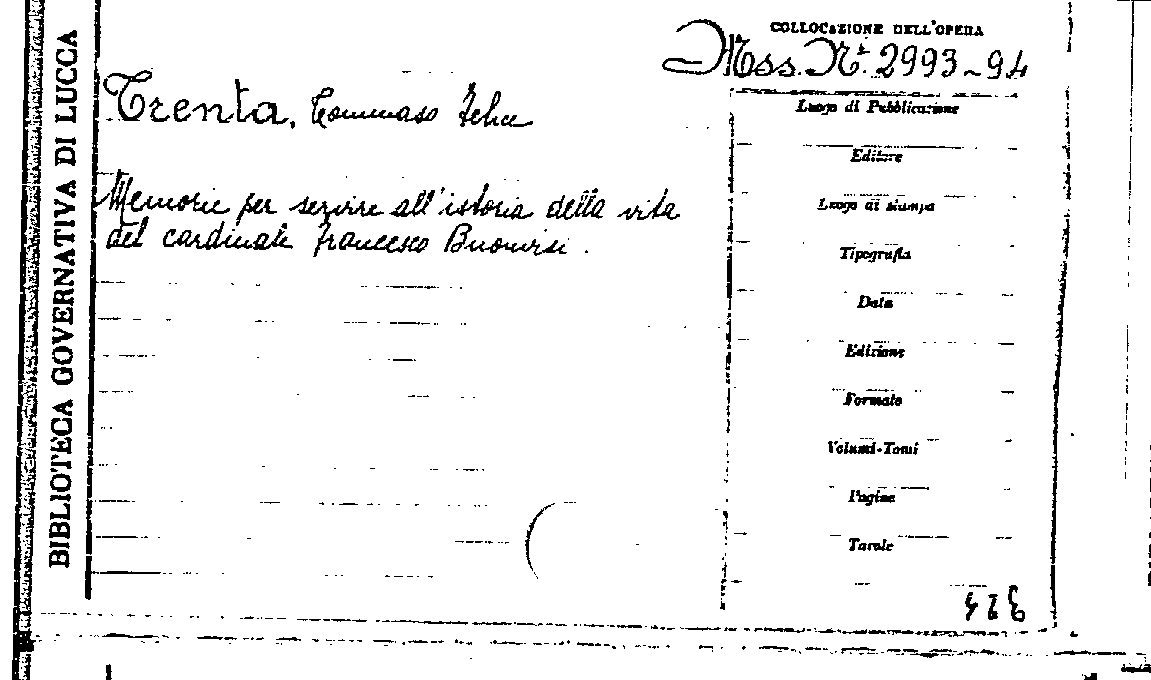 BIBLIOTECA GOVERNATIVA DI LUCCA
COLLOCAZIONE DELL'OPERA
Mss. Nº. 2993-94
Trenta, Tommaso Felice
Memorie per servire all'istoria della vita
del cardinale Francesco Buonvisi.
Luogo di Pubblicazione
Editore
Luogo di stampa
Tipografia
Data
Edizione
Formato
Volumi-Tomi
Pagine
Tavole